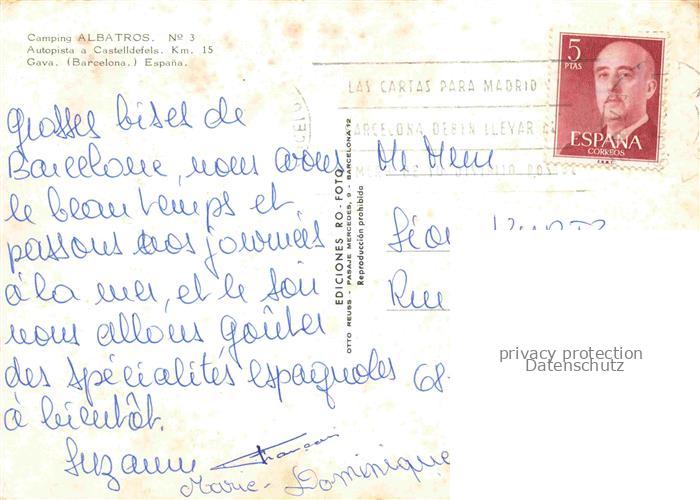 Camping ALBATROS. Nº 3
Autopista a Castelldefels. Km. 15
Gava. (Barcelona.) España.
Grosses bises de
Barcelone, nous avons
le beau temps et
passons nos journées
à la mer, et le soir
nous allons goûter
des spécialités espagnoles
à bientôt.
Suzanne
François
Marie-Dominique
EDICIONES RO-FOTO
OTTO REUSS - PASAJE MERCEDES, 9 - BARCELONA 12
Reproducción prohibida
5
PTAS
ESPAÑA
CORREOS
LAS CARTAS PARA MADRID
BARCELONA DEBEN LLEVAR
Mr. Mem
Léon
Rue
68
privacy protection
Datenschutz